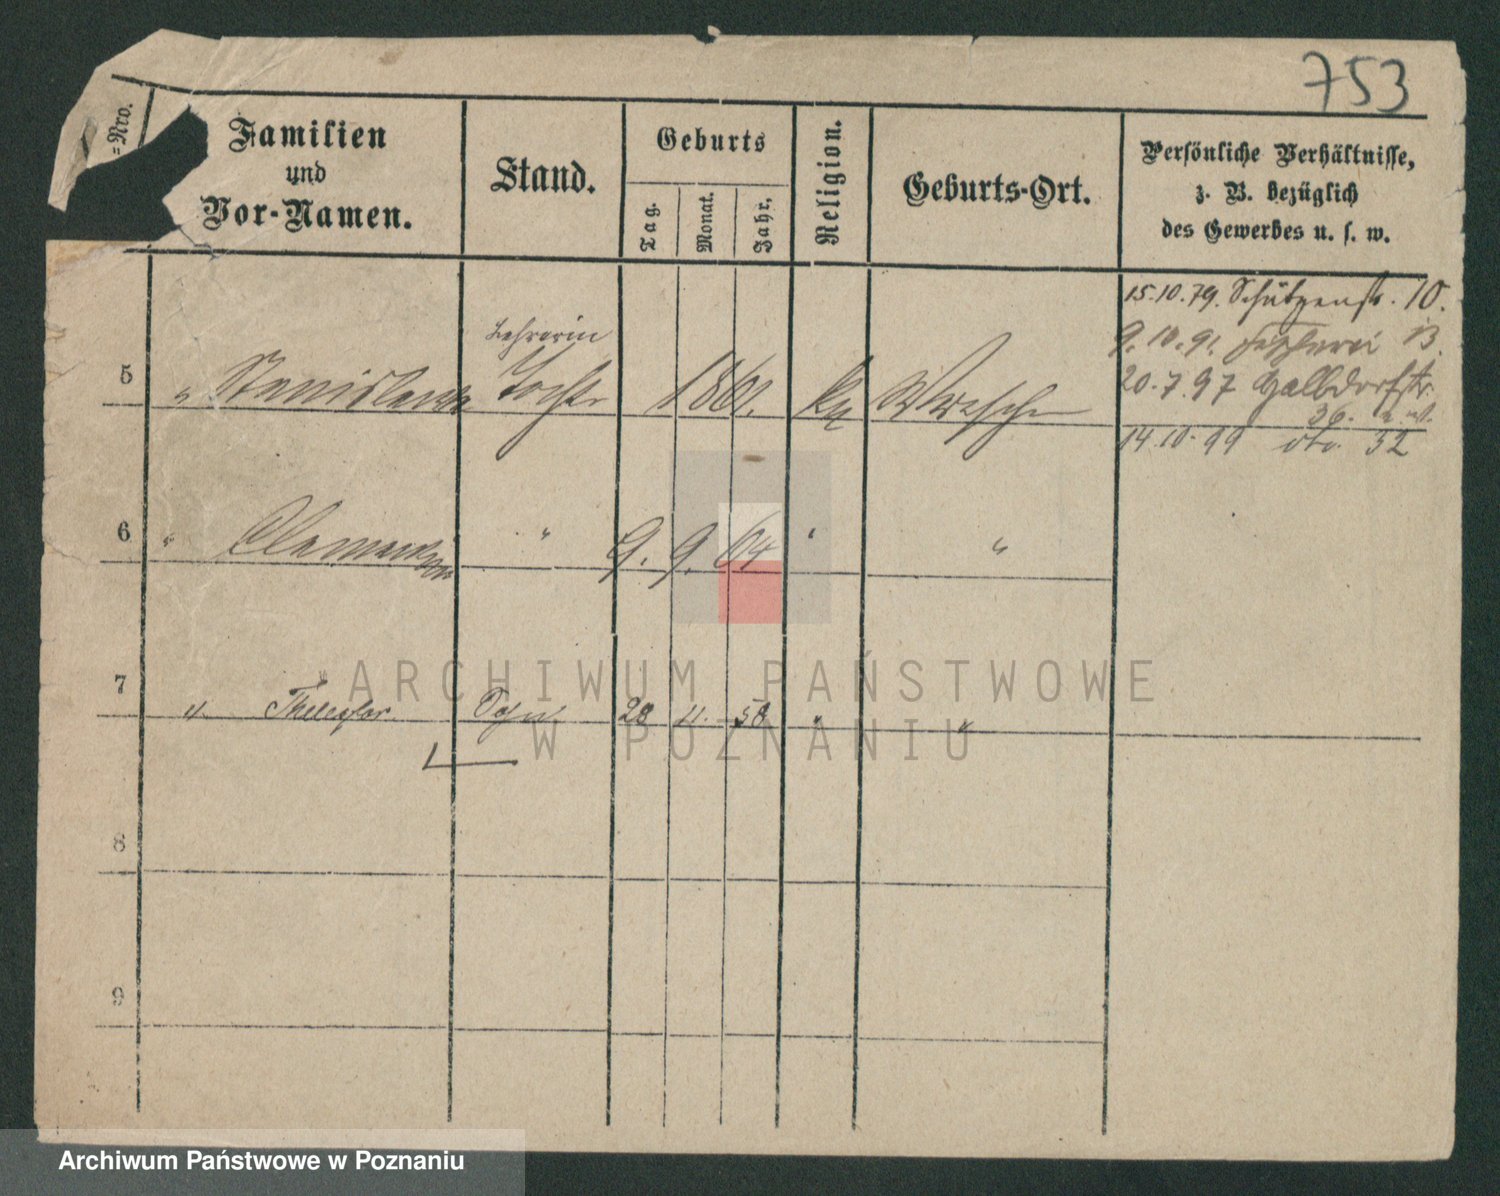 753
=Nro.
Familien
und
Vor-Namen.
Stand.
Geburts
Tag.
Monat.
Jahr.
Religion.
Geburts-Ort.
Persönliche Verhältnisse,
z. B. bezüglich
des Gewerbes u. s. w.
15.10.79. Schützenstr. 10.
9.10.91. 13.
20.7.97 Halbdorfstr.
36.
14.10.99 dto. 32
Lehrerin
5 " Stanislawa Tochter 1861. kath Wreschen
6 " Clementine " 9. 9. 64 " "
7 " Thelesfor Sohn 28 11. 58 " "
8
9
ARCHIWUM PAŃSTWOWE
W POZNANIU
Archiwum Państwowe w Poznaniu